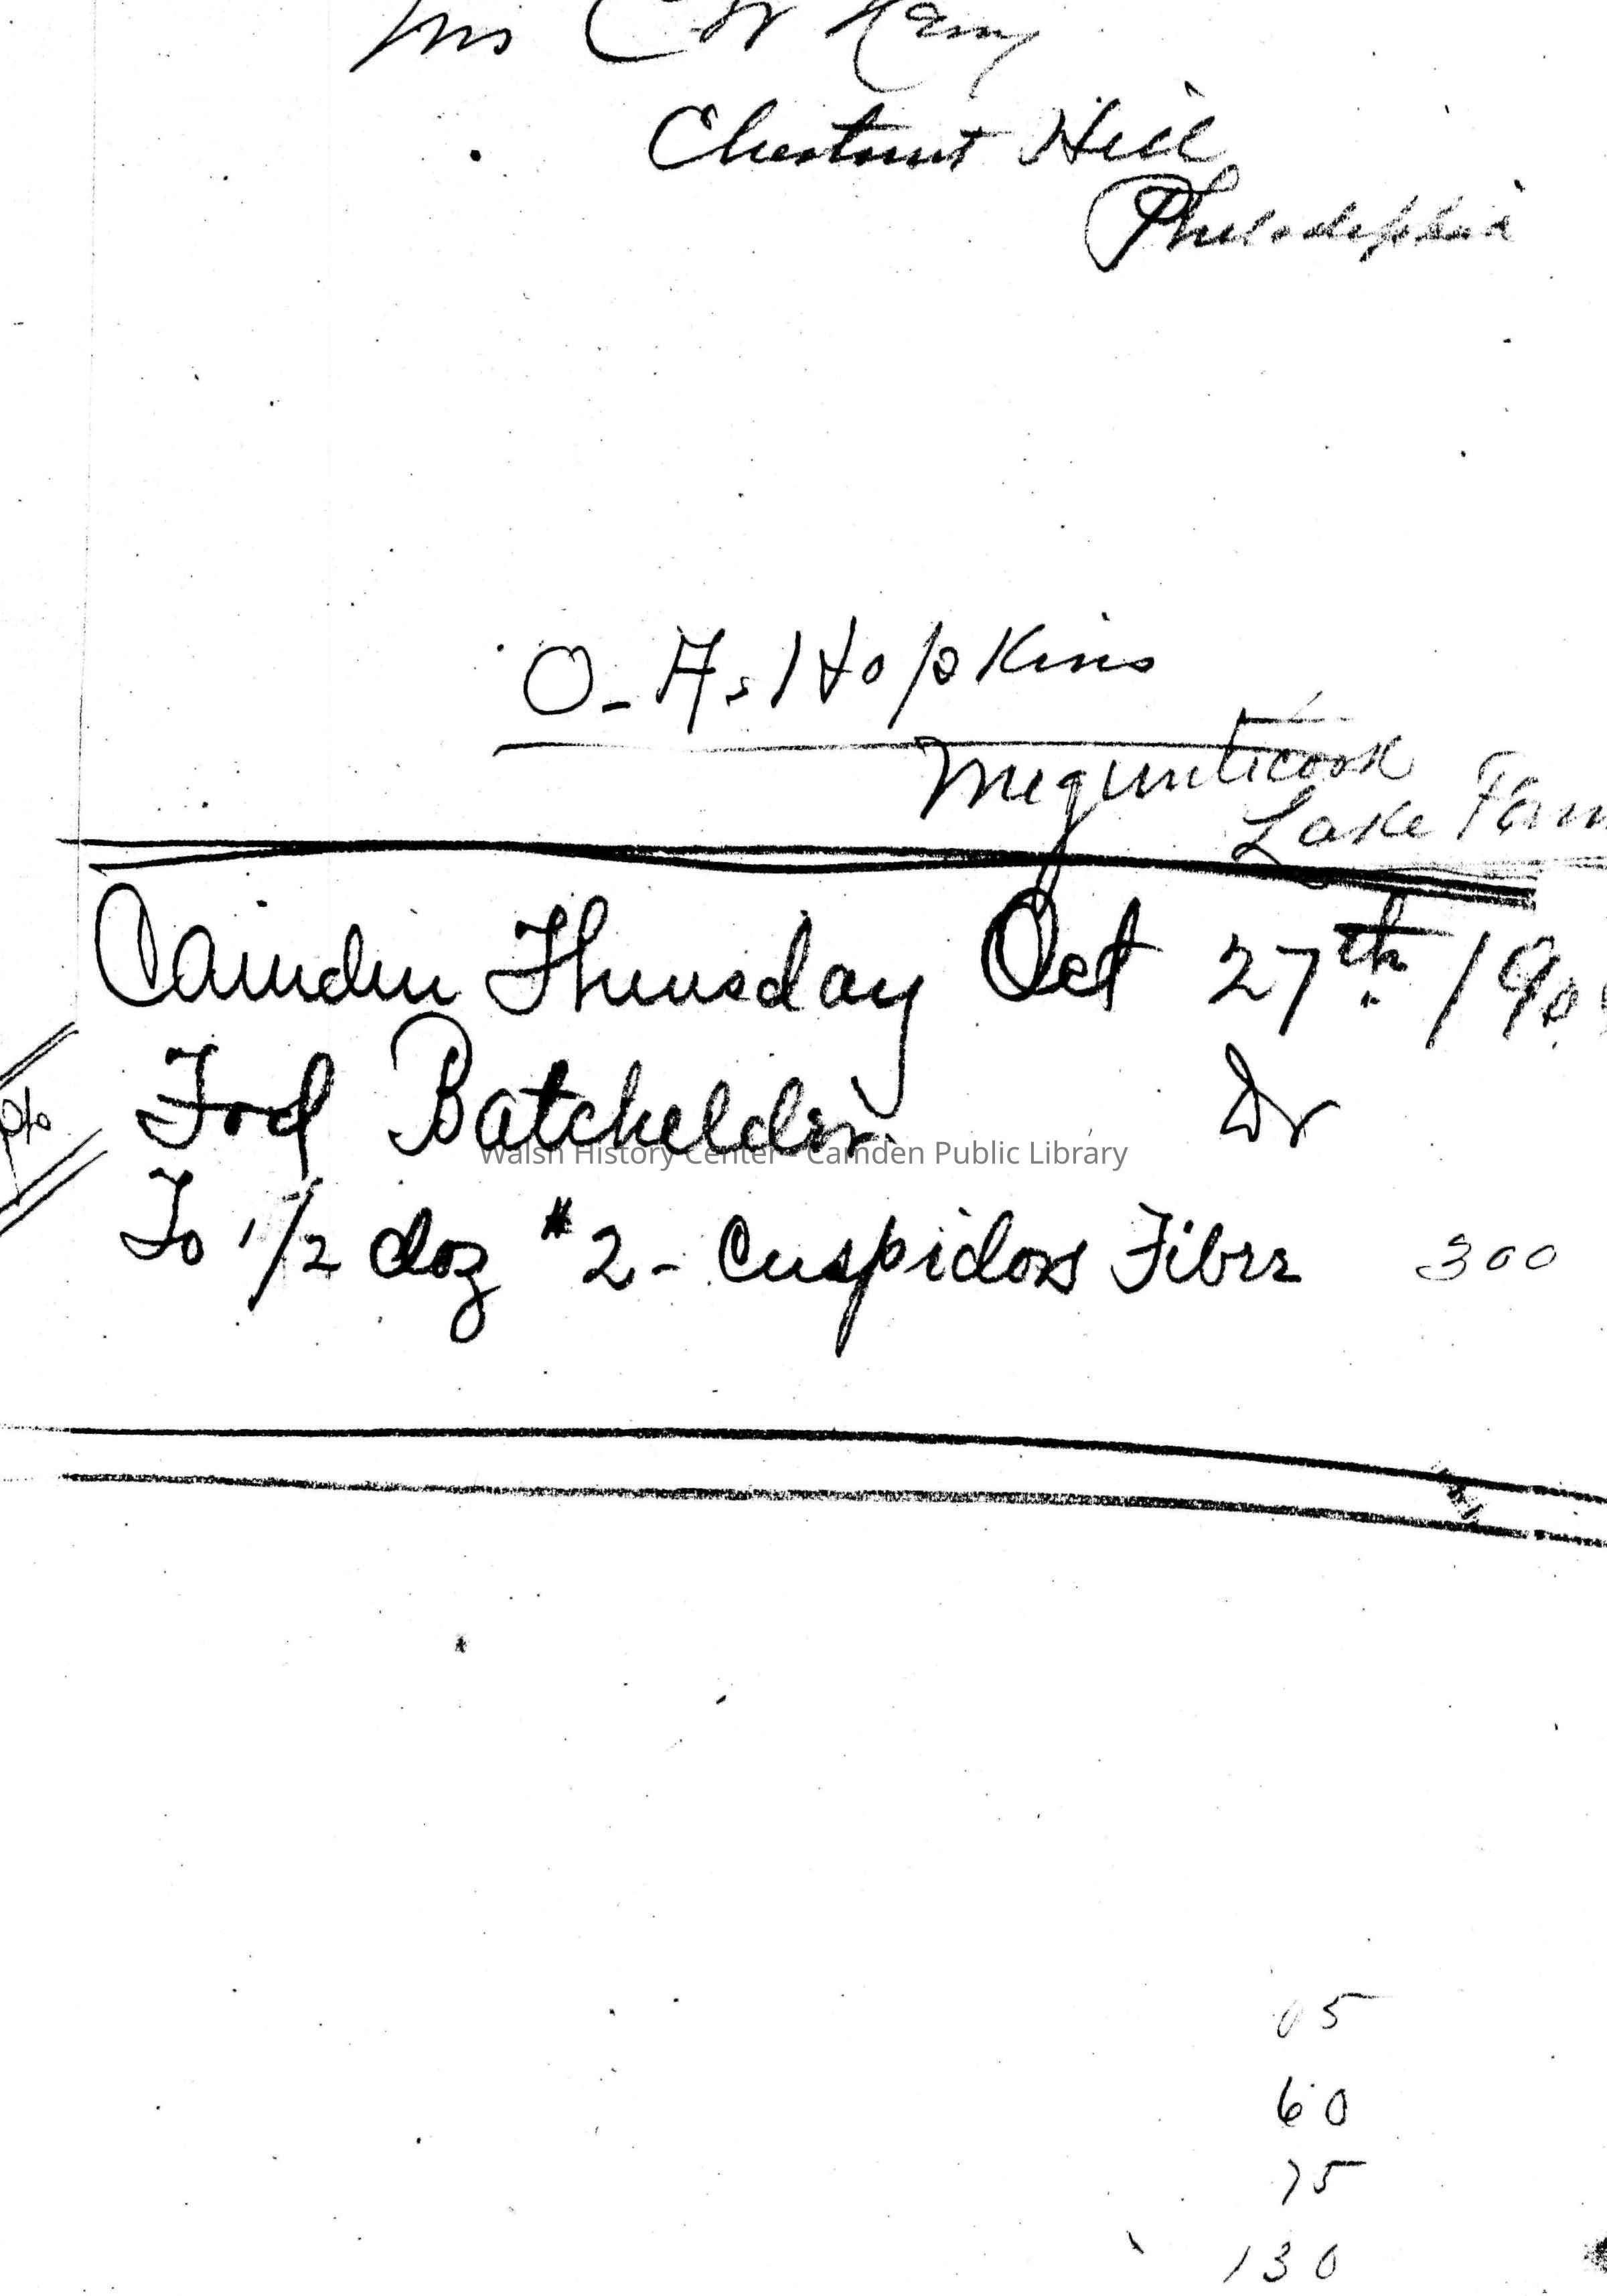 Mrs C W Henry
Chestnut Hill
Philadelphia
O. A. Hopkins
Megunticook
Lake Farm
Camden Thursday Oct 27th 190
Fred Batchelder Dr
To 1/2 doz #2 - Cuspidors Fibre 300
Walsh History Center - Camden Public Library
60
75
130